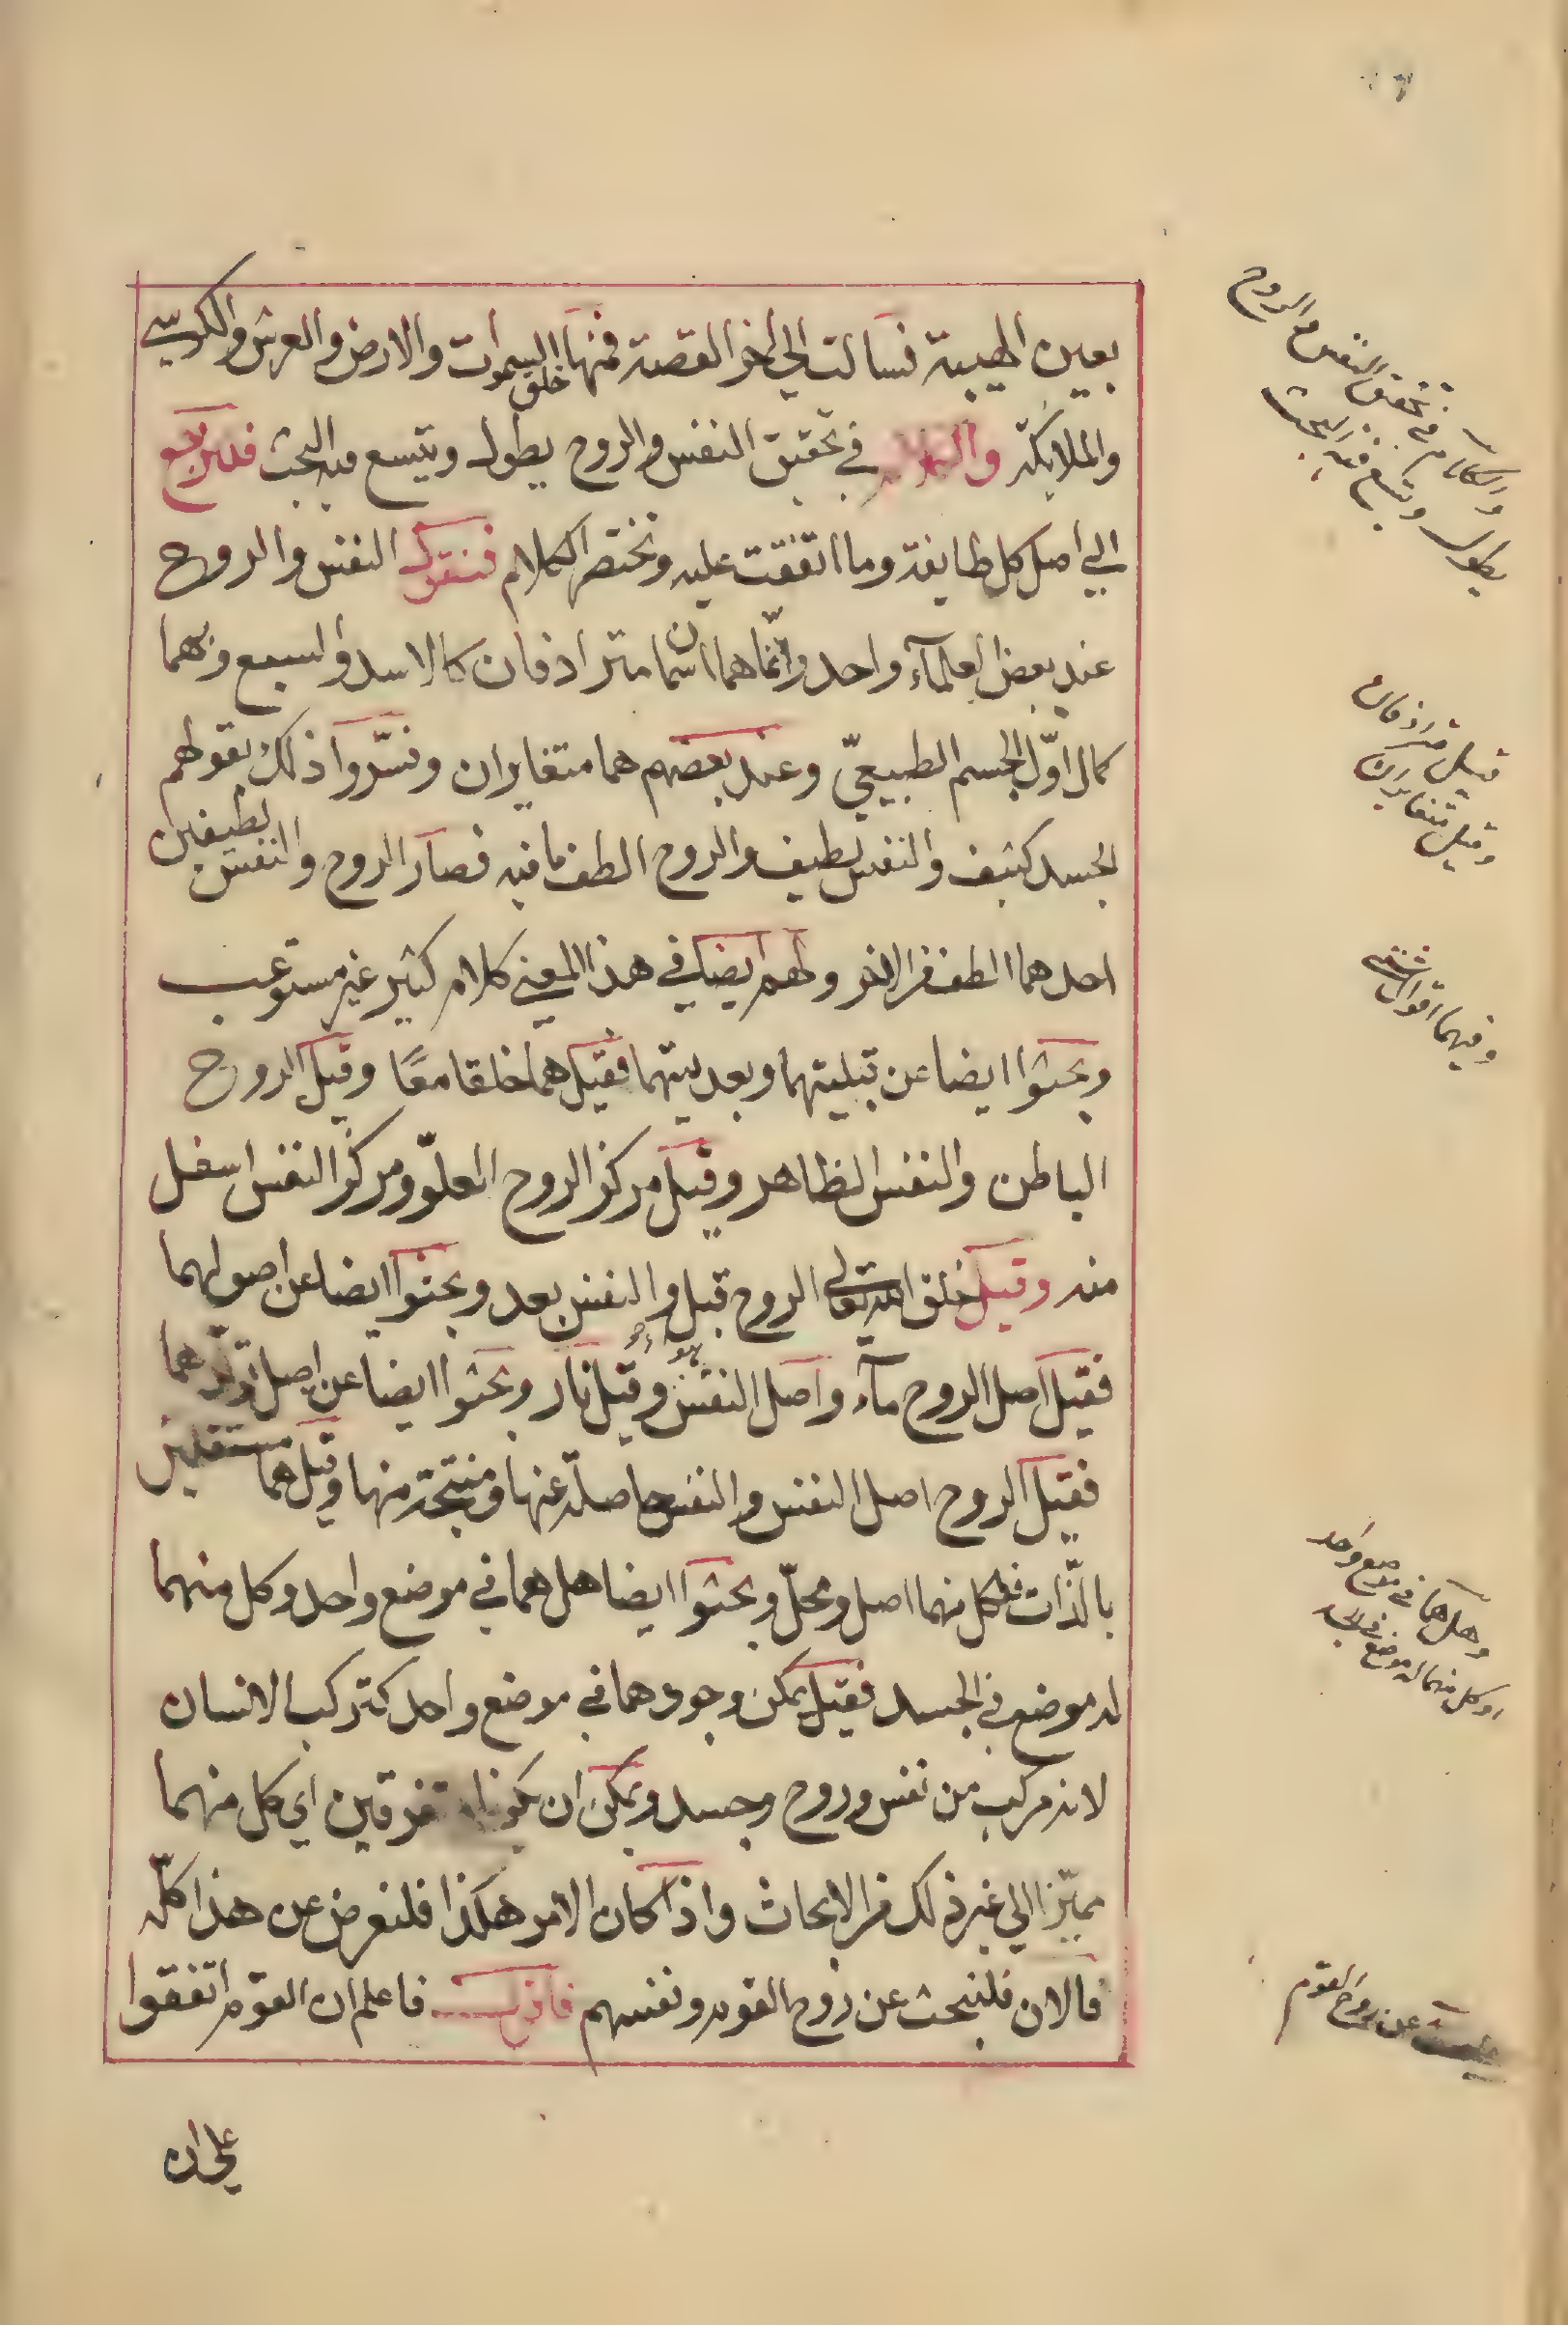 بعين الهيبة فسالت الي اخر القصة فمنها خلق السموات والارض والعرش والكرسي
والملايكة والكلام في تحقيق النفس والروح يطول ويتسع فيه البحث فلنرجع
الي اصل كل طايفة وما اتفقت عليه ونختصر الكلام فنقول النفس والروح
عند بعض العلمآء واحد وانّما هما اسمان مترادفان كالاسد والسبع وبهما
كمال اوّل الجسم الطبيعيّ وعند بعضهم هما متغايران وفسّروا ذلك بقولهم
الجسد كثيف والنفس لطيف والروح الطف ما فيه فصار الروح والنفس لطيفين
احدهما الطف من الاخر ولهم ايضا في هذا المعني كلام كثير غير مستوعب
وبحثوا ايضا عن قبليتهما وبعديتهما فقيل هما خلقا معًا وقيل الروح
الباطن والنفس الظاهر وقيل مركز الروح العلوّ ومركز النفس اسفل
منه وقيل خلق الله تعالي الروح قبل والنفس بعد وبحثوا ايضا عن اصولهما
فقيل اصل الروح مآء واصل النفس هواء وقيل نار وبحثوا ايضا عن اصل
فقيل الروح اصل النفس والنفس حاصلة عنها ومنتجة منها وقيل هما مستقلين
بالذّات فلكل منهما اصل ومحلّ وبحثوا ايضا هل هما في موضع واحد وكل منهما
له موضع في الجسد فقيل يمكن وجودهما في موضع واحد كتركيب الانسان
لانه مركب من نفس وروح وجسد ويمكن ان يكونا متفرقين اي كل منهما
مميّزا الي غير ذلك من الابحاث واذا كان الامر هكذا فلنعرض عن هذا كلّه
فالان فلنبحث عن روح القوم ونفسهم فاعلم ان القوم اتفقوا
علي ان
والكلام في تحقيق النفس والروح
يطول ويتسع فيه البحث
قيل مترادفان
وقيل متغايران
وفيهما اقوال
وهل هما في موضع واحد
او كل منهما له موضع في الجسد
عن روح القوم